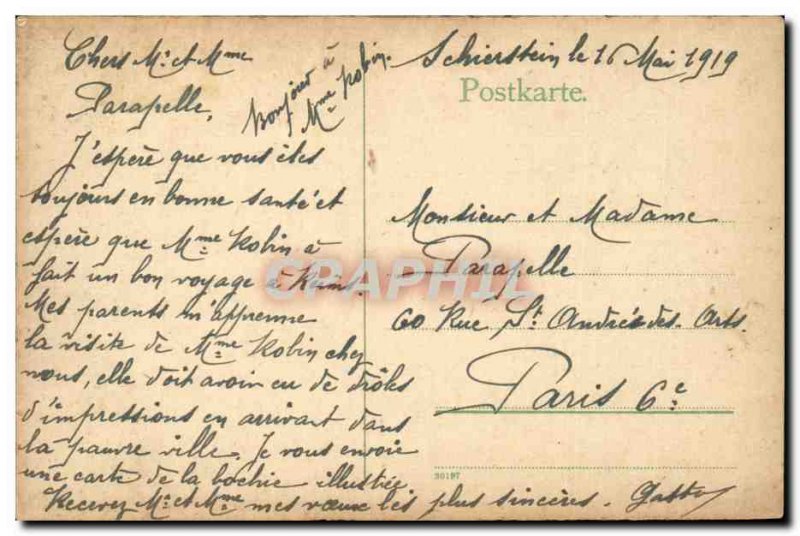 Chers Mr. et Mme
Parapelle,
J'espère que vous êtes
toujours en bonne santé et
espère que Mme Robin à
fait un bon voyage à Reims.
Mes parents m'apprenne
la visite de Mme Robin chez
nous, elle doit avoir eu de drôles
d'impressions en arrivant dans
la pauvre ville. Je vous envoie
une carte de la bochie illustrée
Recevez Mr. et Mme mes vœux les plus sincères.
Bonjour à
Mme Robin.
Schierstein le 16 Mai 1919
Postkarte.
Monsieur et Madame
Parapelle
60 Rue St. André-des-Arts.
Paris 6e
30197
CRAPHIL